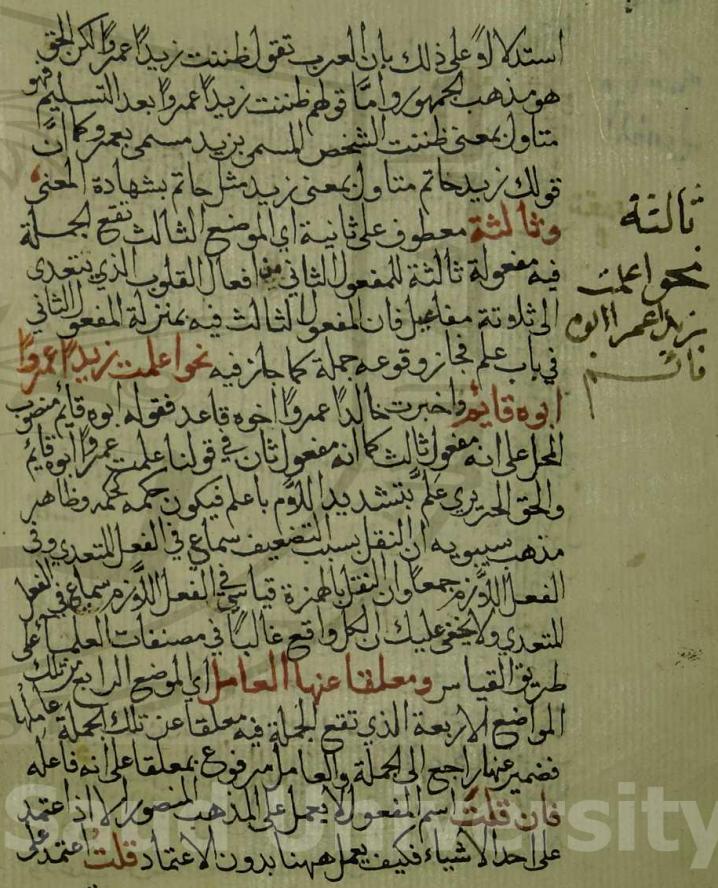 استدلالا على ذلك بان العرب تقول ظننت زيدا عمروا لكن الحق
هو مذهب الجمهور واما قولهم ظننت زيدا عمروا بعد التسليم فهو
متاول بمعنى ظننت الشخص المسمى بزيد مسمى بعمرو كما ان
قولك زيد حاتم متاول بمعنى زيد مثل حاتم بشهادة المعنى
وثالثة معطوف على ثانية اي الموضع الثالث تقع الجملة
فيه مفعولة ثالثة للمفعول الثاني من افعال القلوب الذي يتعدى
الى ثلاثة مفاعيل فان المفعول الثالث فيه بمنزلة المفعول الثاني
في باب علم فجاز وقوعه جملة كما جاز فيه نحو اعلمت زيدا عمروا
ابوه قائم واخبرت خالدا عمروا اخوه قاعد فقوله ابوه قائم منصوب
المحل على انه مفعول ثالث كما انه مفعول ثان في قولنا علمت عمروا ابوه قايم
والحق الحريري علم بتشديد اللام باعلم فيكون حكمه كحكمه وظاهر
مذهب سيبويه ان النقل بسبب التضعيف سماع في الفعل المتعدي وفي
الفعل اللازم جمعا وان النقل بالهمزة قياسي في الفعل اللازم سماع في الفعل
المتعدي ولا يخفى عليك ان الكل واقع غالبا في مصنفات العلماء على
طريق القياس ومعلقا عنها العامل اي الموضع الرابع من تلك
المواضع الاربعة الذي تقع الجملة فيه معلقا عن تلك الجملة عاملها
فضمير عنها راجع الى الجملة والعامل مرفوع بمعلقا على انه فاعله
فان قلت اسم المفعول لا يعمل على المذهب المنصور الا اذا اعتمد
على احد الاشياء فكيف يعمل ههنا بدون الاعتماد قلت اعتمد على
ثالثة
نحو اعلمت
زيدا عمرا ابوه
قائم
University